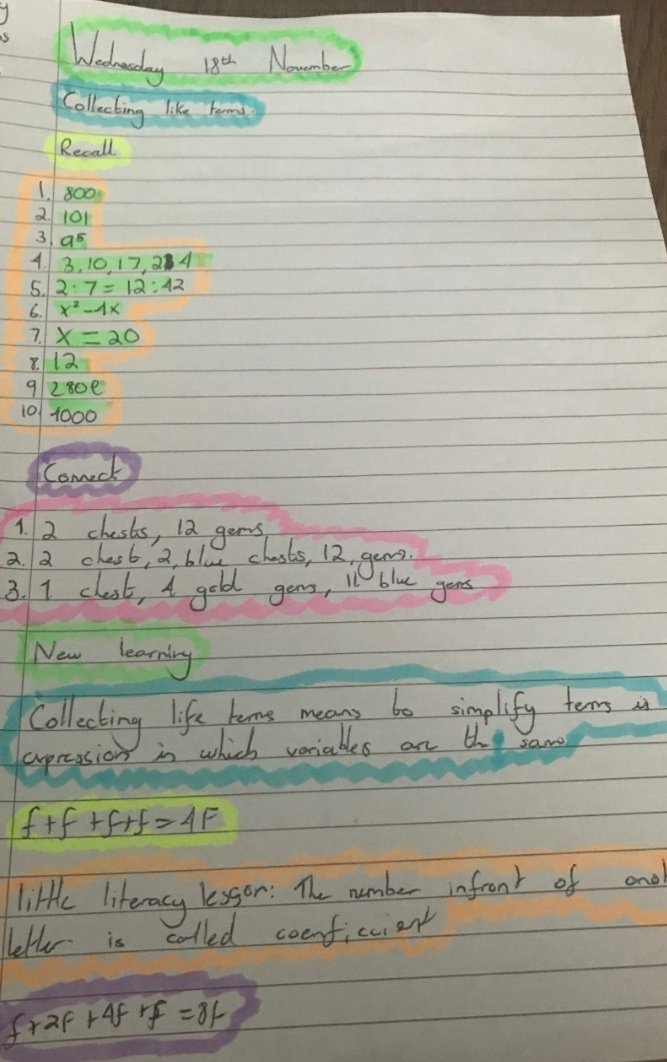 y
s
Wednesday 18th November
Collecting like terms.
Recall
1. 800
2 101
3. a⁵
4. 3, 10, 17, 24
5. 2:7 = 12:42
6. x² - 4x
7. x = 20
8. 12
9 280l
10. 1000
Connect
1. 2 chests, 12 gems
2. 2 chest, 2, blue chests, 12, gems.
3. 1 chest, 4 gold gems, 11 blue gems
New learning
Collecting life terms means to simplify terms is
expression in which variables are the same.
f + f + f + f = 4F
little literacy lesson: The number infront of
letter is called coenficcient
f + 2f + 4f + f = 8f